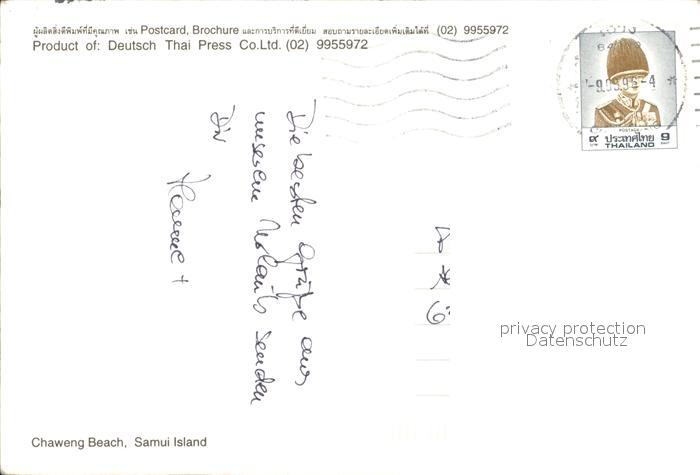 ผู้ผลิตสิ่งตีพิมพ์ที่มีคุณภาพ เช่น Postcard, Brochure และการบริการที่ดีเยี่ยม สอบถามรายละเอียดเพิ่มเติมได้ที่ (02) 9955972
Product of: Deutsch Thai Press Co.Ltd. (02) 9955972
9.09.96-4
POSTAGE
๙ ประเทศไทย 9
บาท THAILAND BAHT
Die besten Grüße aus
unserem Urlaub senden
Dir
privacy protection
Datenschutz
Chaweng Beach, Samui Island